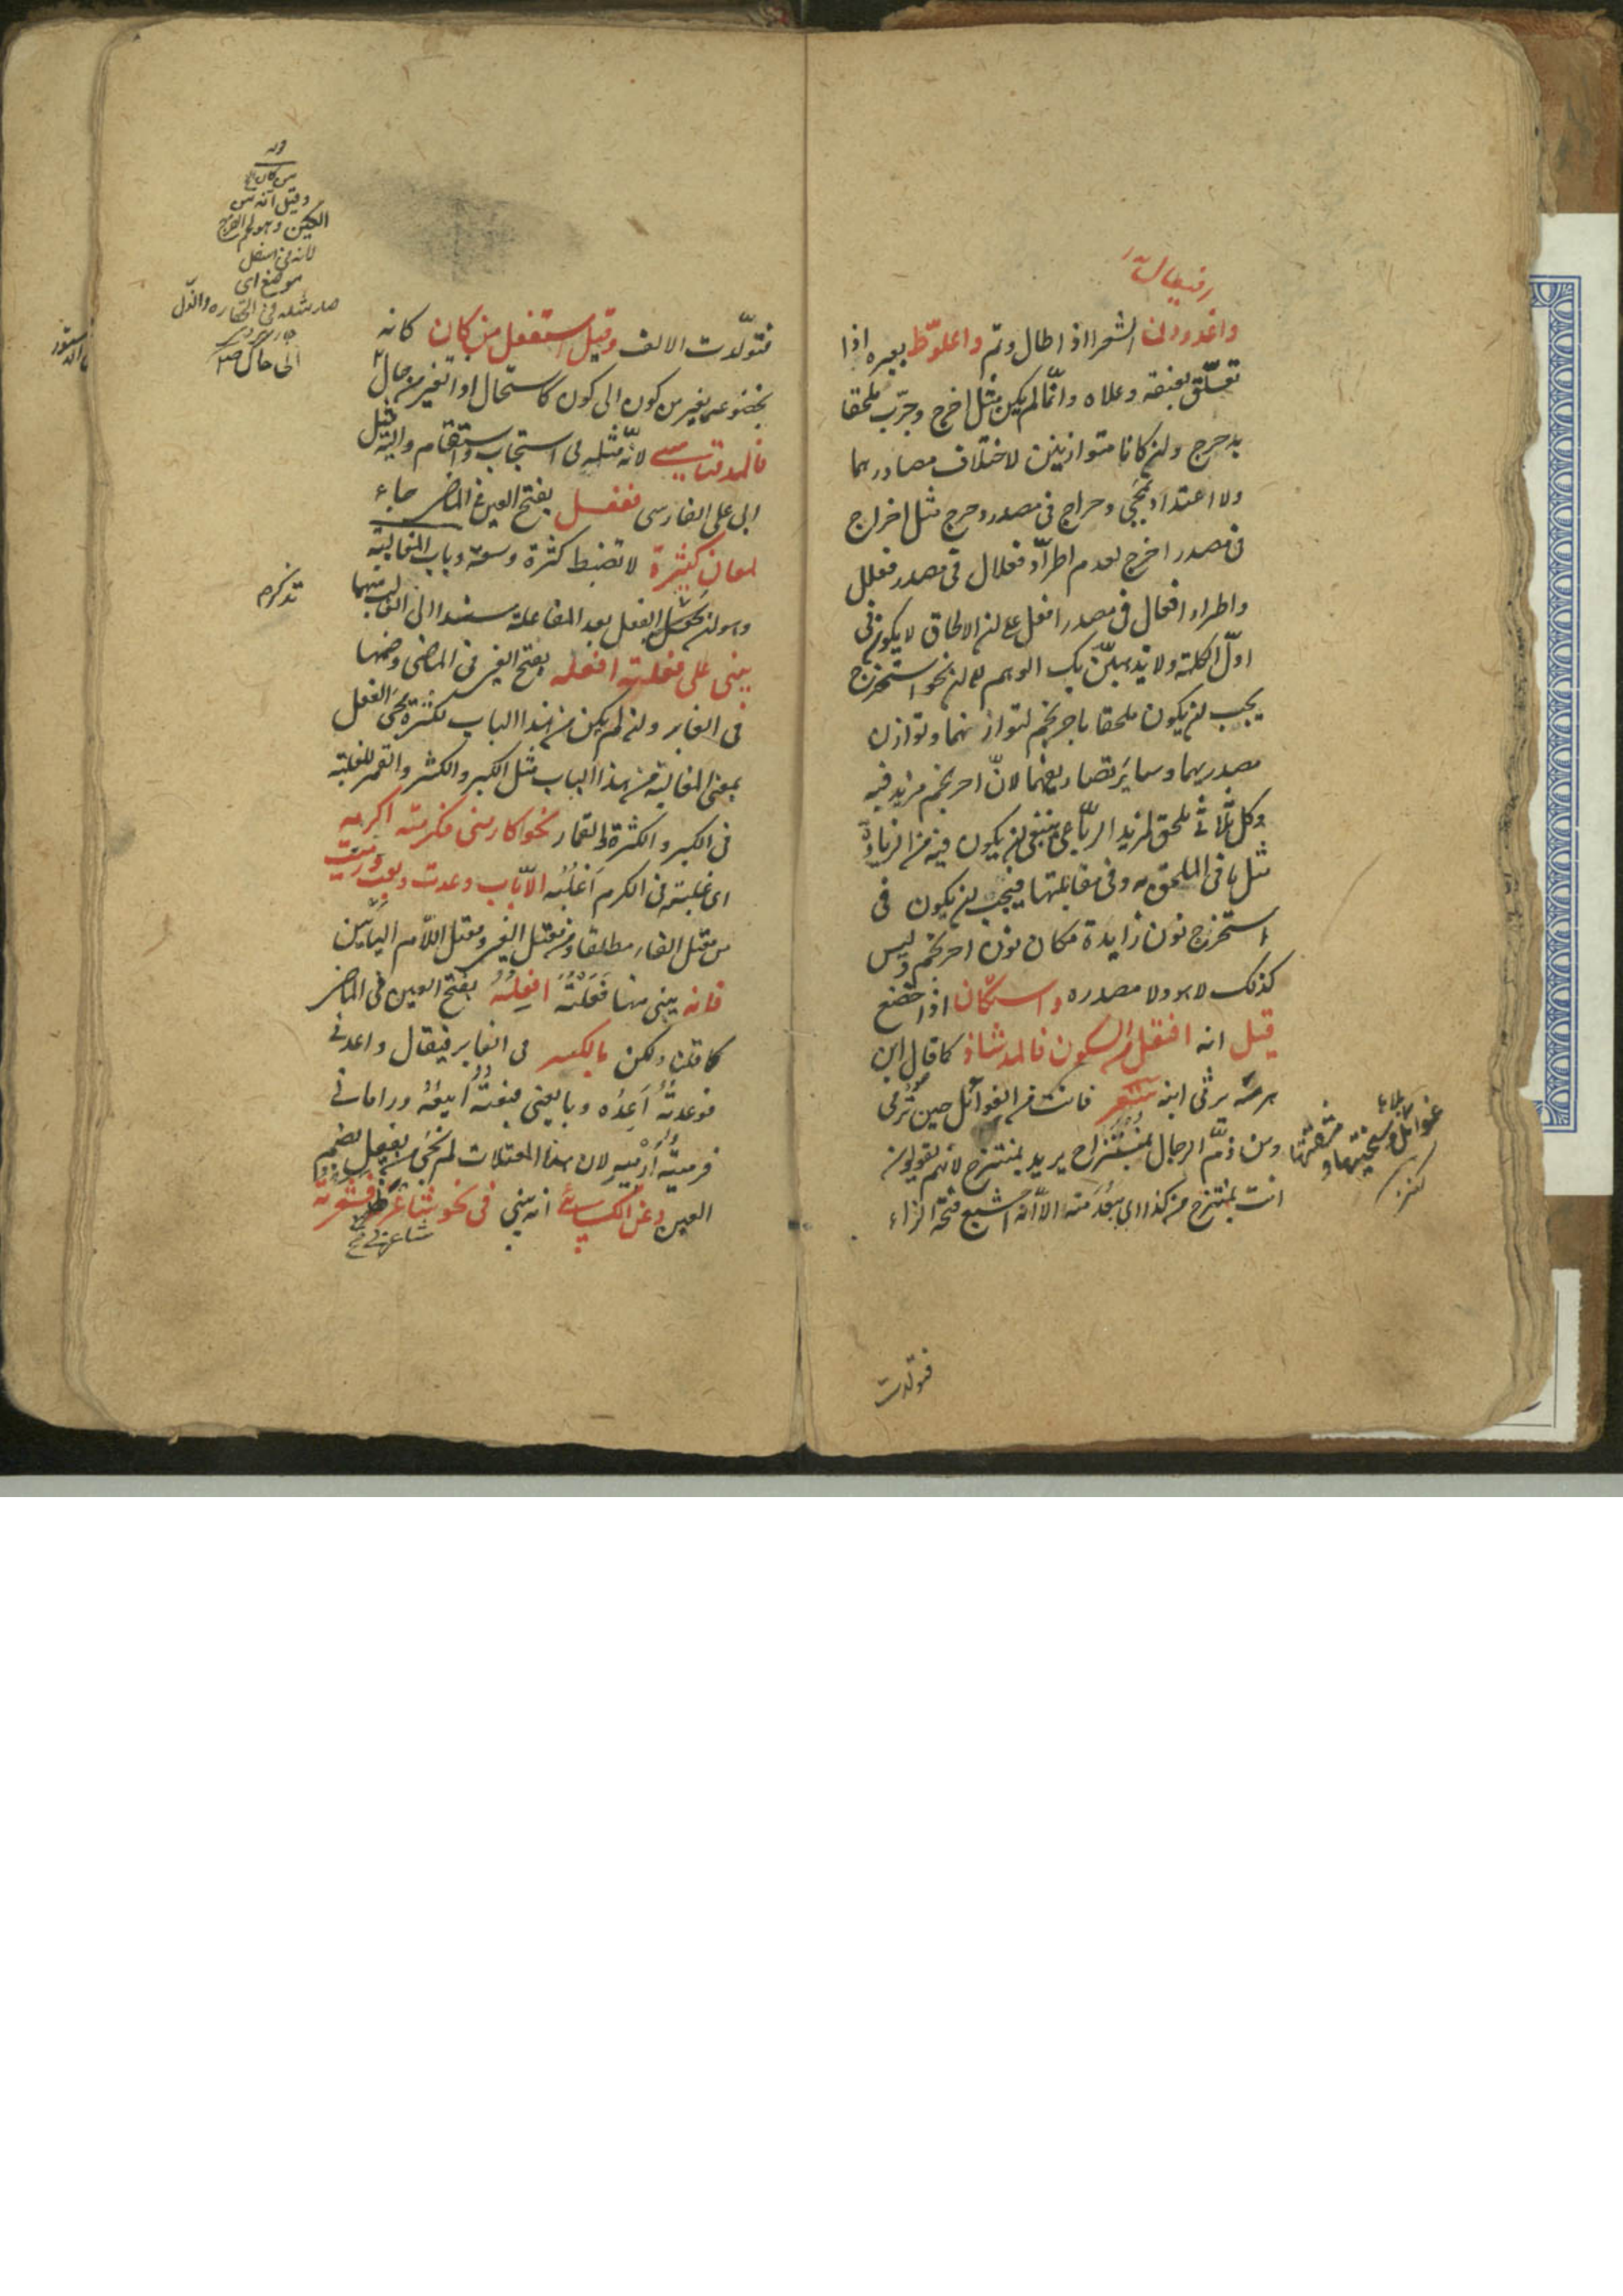 واغدودن الشعر اذا طال وتم واعلوّط بعيره اذا
تعلّق بعنقه وعلاه وانّما لم يكن مثل اخرج وجرّب ملحقا
بدحرج ولن كانا متوازنين لاختلاف مصادرهما
ولا اعتداد بمجئ دحراج فى مصدر دحرج مثل اخراج
فى مصدر اخرج لعدم اطرّاد فعلال فى مصدر فعلل
واطراد افعال فى مصدر افعل على لن الالحاق لا يكون فى
اوّل الكلمة ولا يذهبنّ بك الوهم لا لن نحو استخرج
يجب لن يكون ملحقا باحرنجم لتوازنهما وتوازن
مصدريهما وساير تصاريفهما لانّ احرنجم مزيد فيه
وكل ثلاثى ملحق لمزيد الربّاعى ينبغى لن يكون فيه من الزيادة
مثل ما فى الملحق به وفى مقابلتها فيجب لن يكون فى
استخرج نون زايدة مكان نون احرنجم وليس
كذلك لا هو ولا مصدره واستكان اذا خضع
قيل انه افتعل من السكون فالمد شاذ كما قال ابن
هرمة يرثى ابنه شعر فانت من الغوائل حين تُرمى
ومن ذمّ الرجال بمنتزاح يريد بمنتزح لأنهم يقولون
انت بمنتزح من كذا اى ببُعد منه الا انه اشبع فتحة الزاء
فتولدت
فتولّدت الالف وقيل استفعل من كان كانه
بخضوعه يغير من كون الى كون كاستحال اذا تغير من حال
فالمد قياسى لانّه مثله فى استجاب واستقام واليه ميل
ابى على الفارسى ففعل بفتح العين فى الماضى جاء
لمعانٍ كثيرة لا تضبط كثرة وسعة وباب المغالبة
وهو لن يحصل الفعل بعد المفاعلة مسندا الى الغالب منهما
يبنى على فعلته افعله بفتح العين فى الماضى وضمها
فى الغابر ولن لم يكن من هذا الباب لكثرة مجئ الفعل
بمعنى المغالبة من هذا الباب مثل الكبر والكثر والقمر للغلبة
فى الكبر والكثرة والقمار نحو كارمنى فكرمته اكرمه
اى غلبته فى الكرم اَغلُبُه الا باب وعدت وبعت ورميت
من معتل الفاء مطلقا ومن معتل العين ومعتل اللام اليائيين
فانه يبنى منها فَعَلْتُهُ افعِلُهُ بفتح العين فى الماضى
كما قلنا ولكن بالكسر فى الغابر فيقال واعدنى
فوعدتُهُ اَعِدُه وبايعنى فبعتُهُ اَبيعُهُ ورامانى
فرميتُه اَرْميهِ لان هذا المعتلات لم تجئ من يفعل بضم
العين وعن الكسائى انه يبنى فى نحو شاعرنى فشعرته
قوله
من كان
وقيل انه من
لانه فى اسفل
موضع اى
صار مثله فى الحقارة والذّل